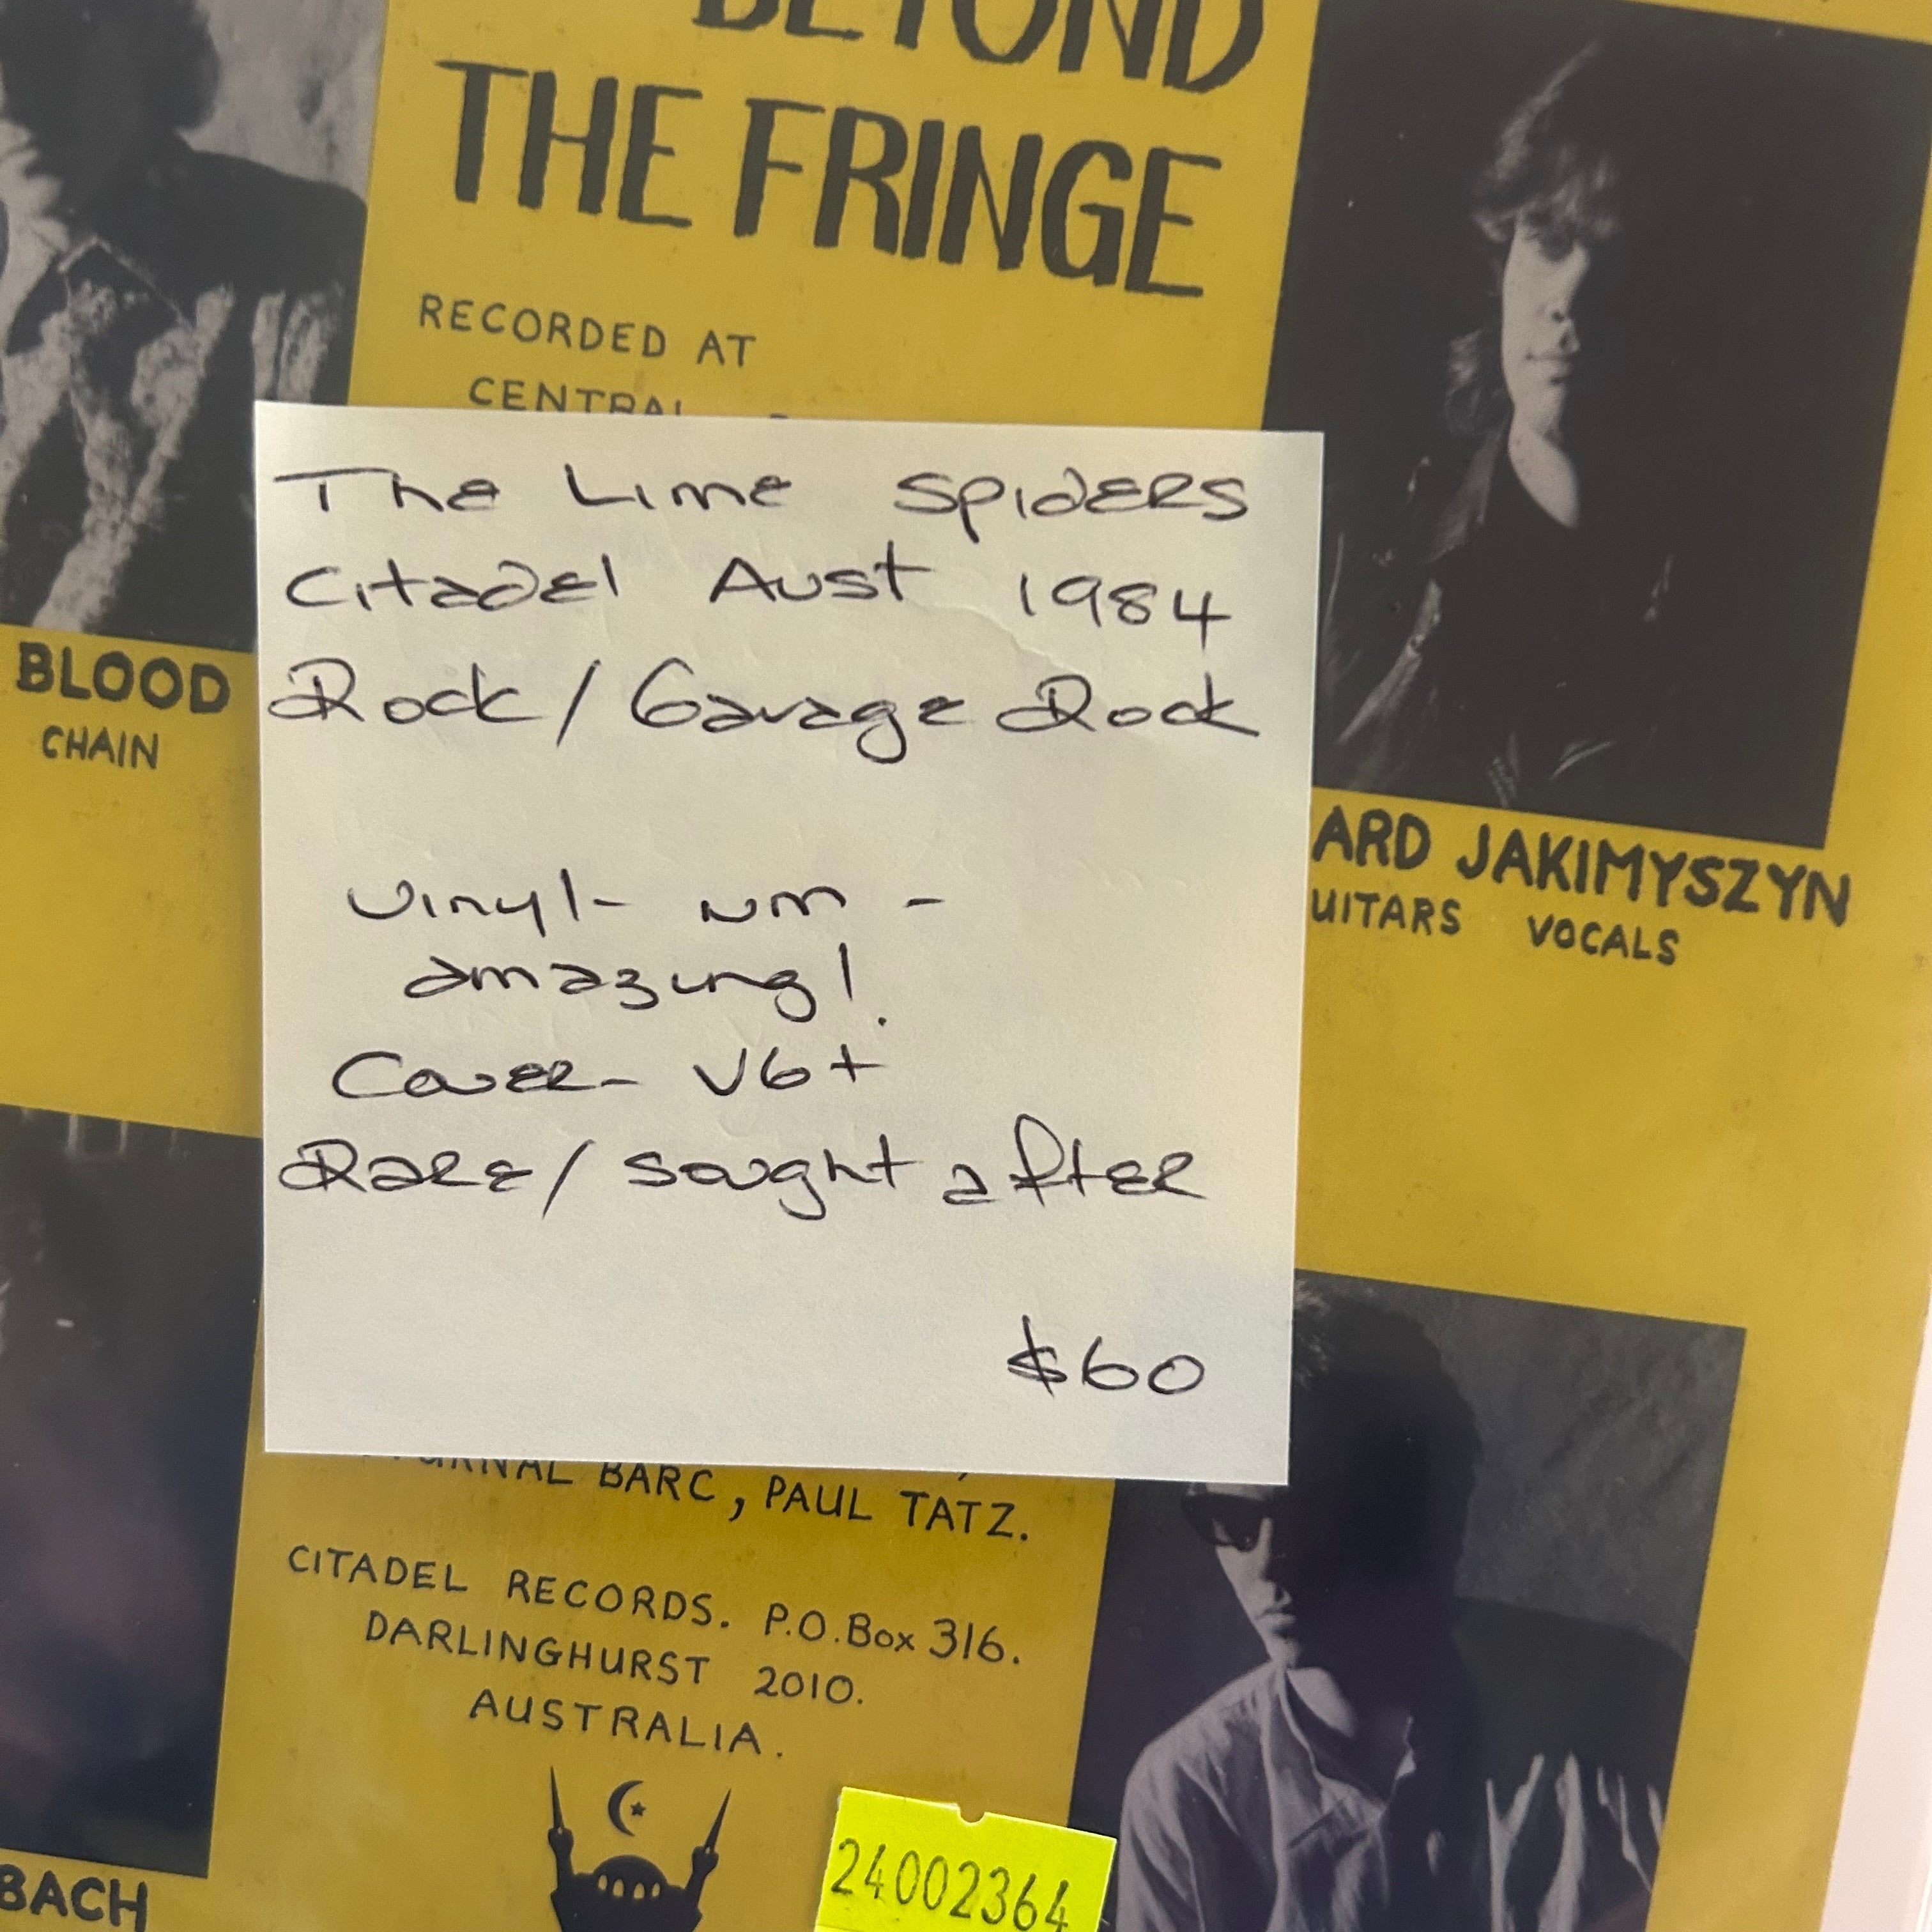 BEYOND
THE FRINGE
RECORDED AT
CENTRAL
The Lime Spiders
Citadel Aust 1984
Rock / Garage Rock
Vinyl - NM -
amazing!
Cover - VG+
Rare / sought after
$60
BLOOD
CHAIN
ARD JAKIMYSZYN
UITARS VOCALS
BARC, PAUL TATZ.
CITADEL RECORDS. P.O. Box 316.
DARLINGHURST 2010.
AUSTRALIA.
BACH
24002364